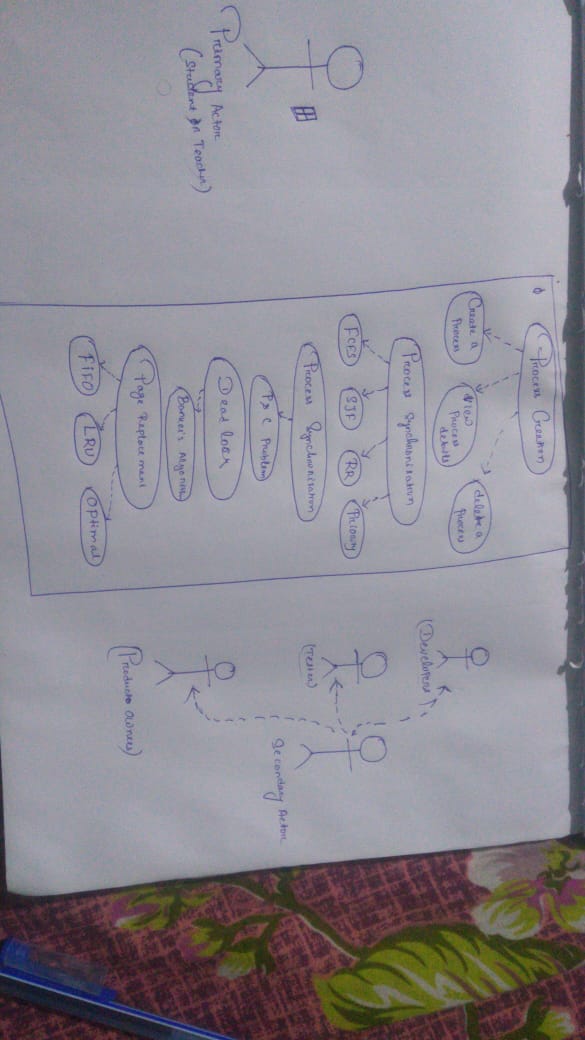 Primary Actor
(Student or Teacher)
Process Creation
Create a
Process
View
Process
details
delete a
Process
Process Synchronisation
FCFS
SJF
RR
Priority
Process Synchronisation
P & C Problem
Dead lock
Banker's Algorithm
Page Replacement
FIFO
LRU
OPtimal
(Developers)
(Tester)
Secondary Actor
(Product owners)